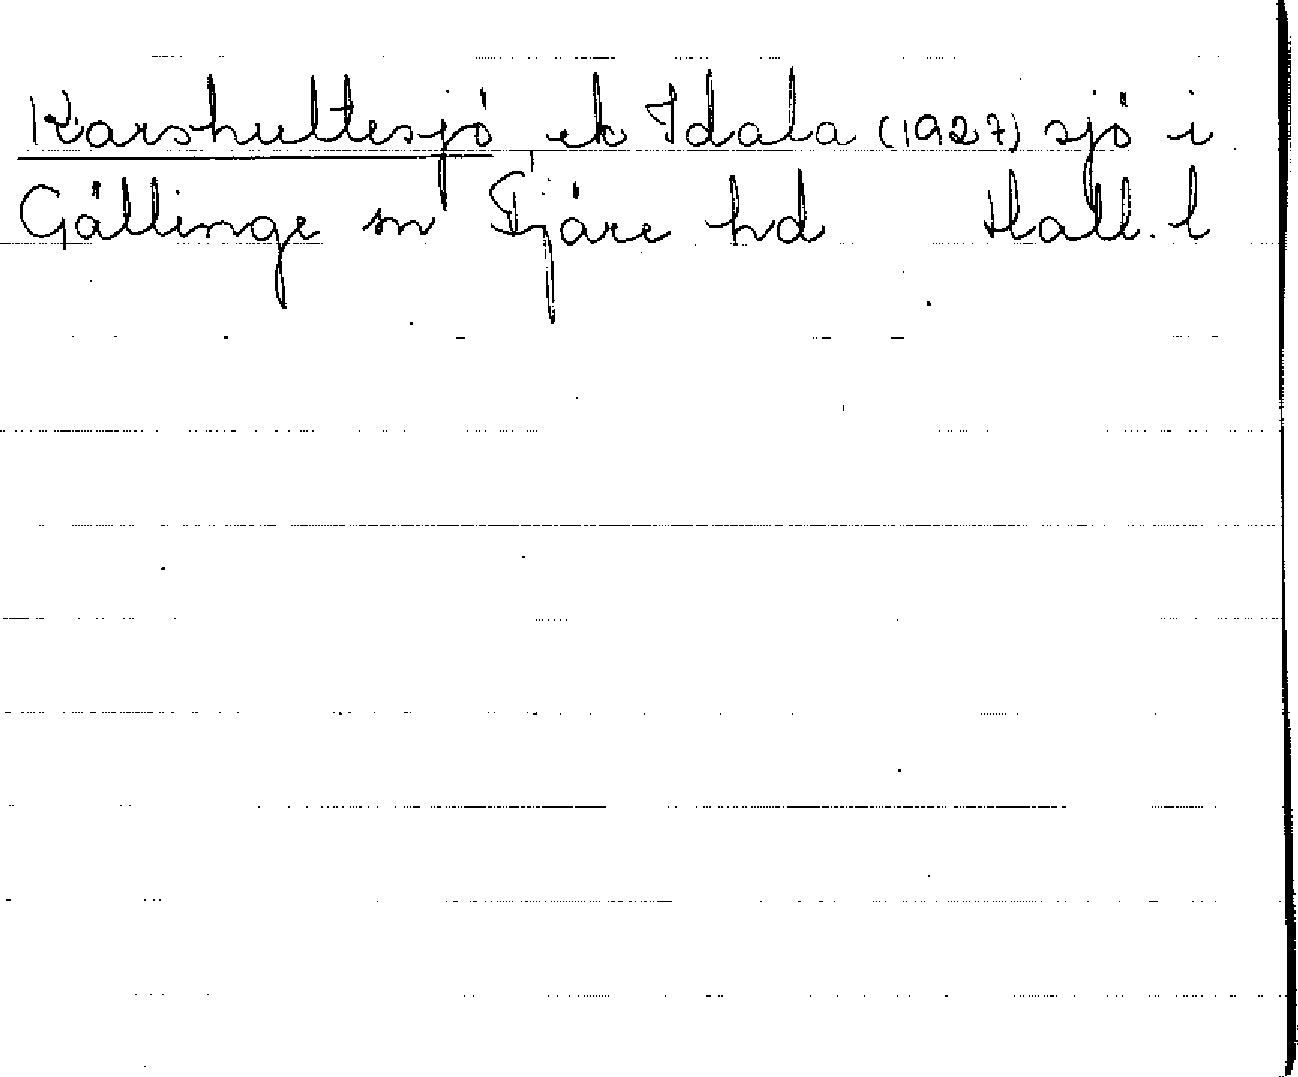 Karshultesjö ek Idala (1927) sjö i
Gällinge sn Fjäre hd Hall. l